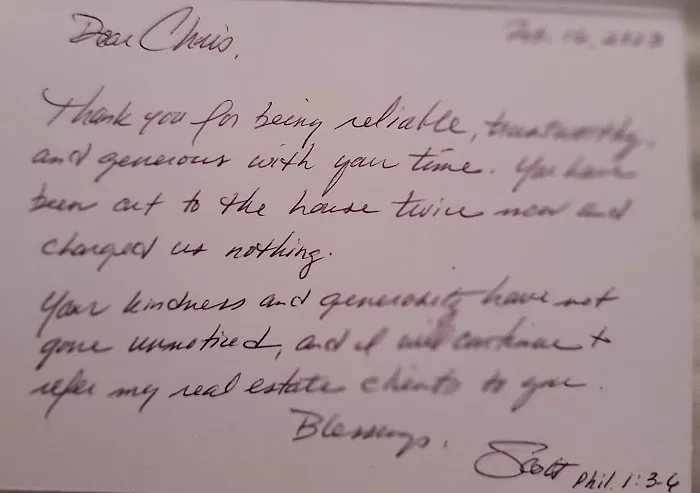 Dear Chris,
Feb. 16, 2023
Thank you for being reliable, trustworthy,
and generous with your time. You have
been out to the house twice now and
charged us nothing.
Your kindness and generosity have not
gone unnoticed, and I will continue to
refer my real estate clients to you.
Blessings,
Scott Phil. 1:3-6